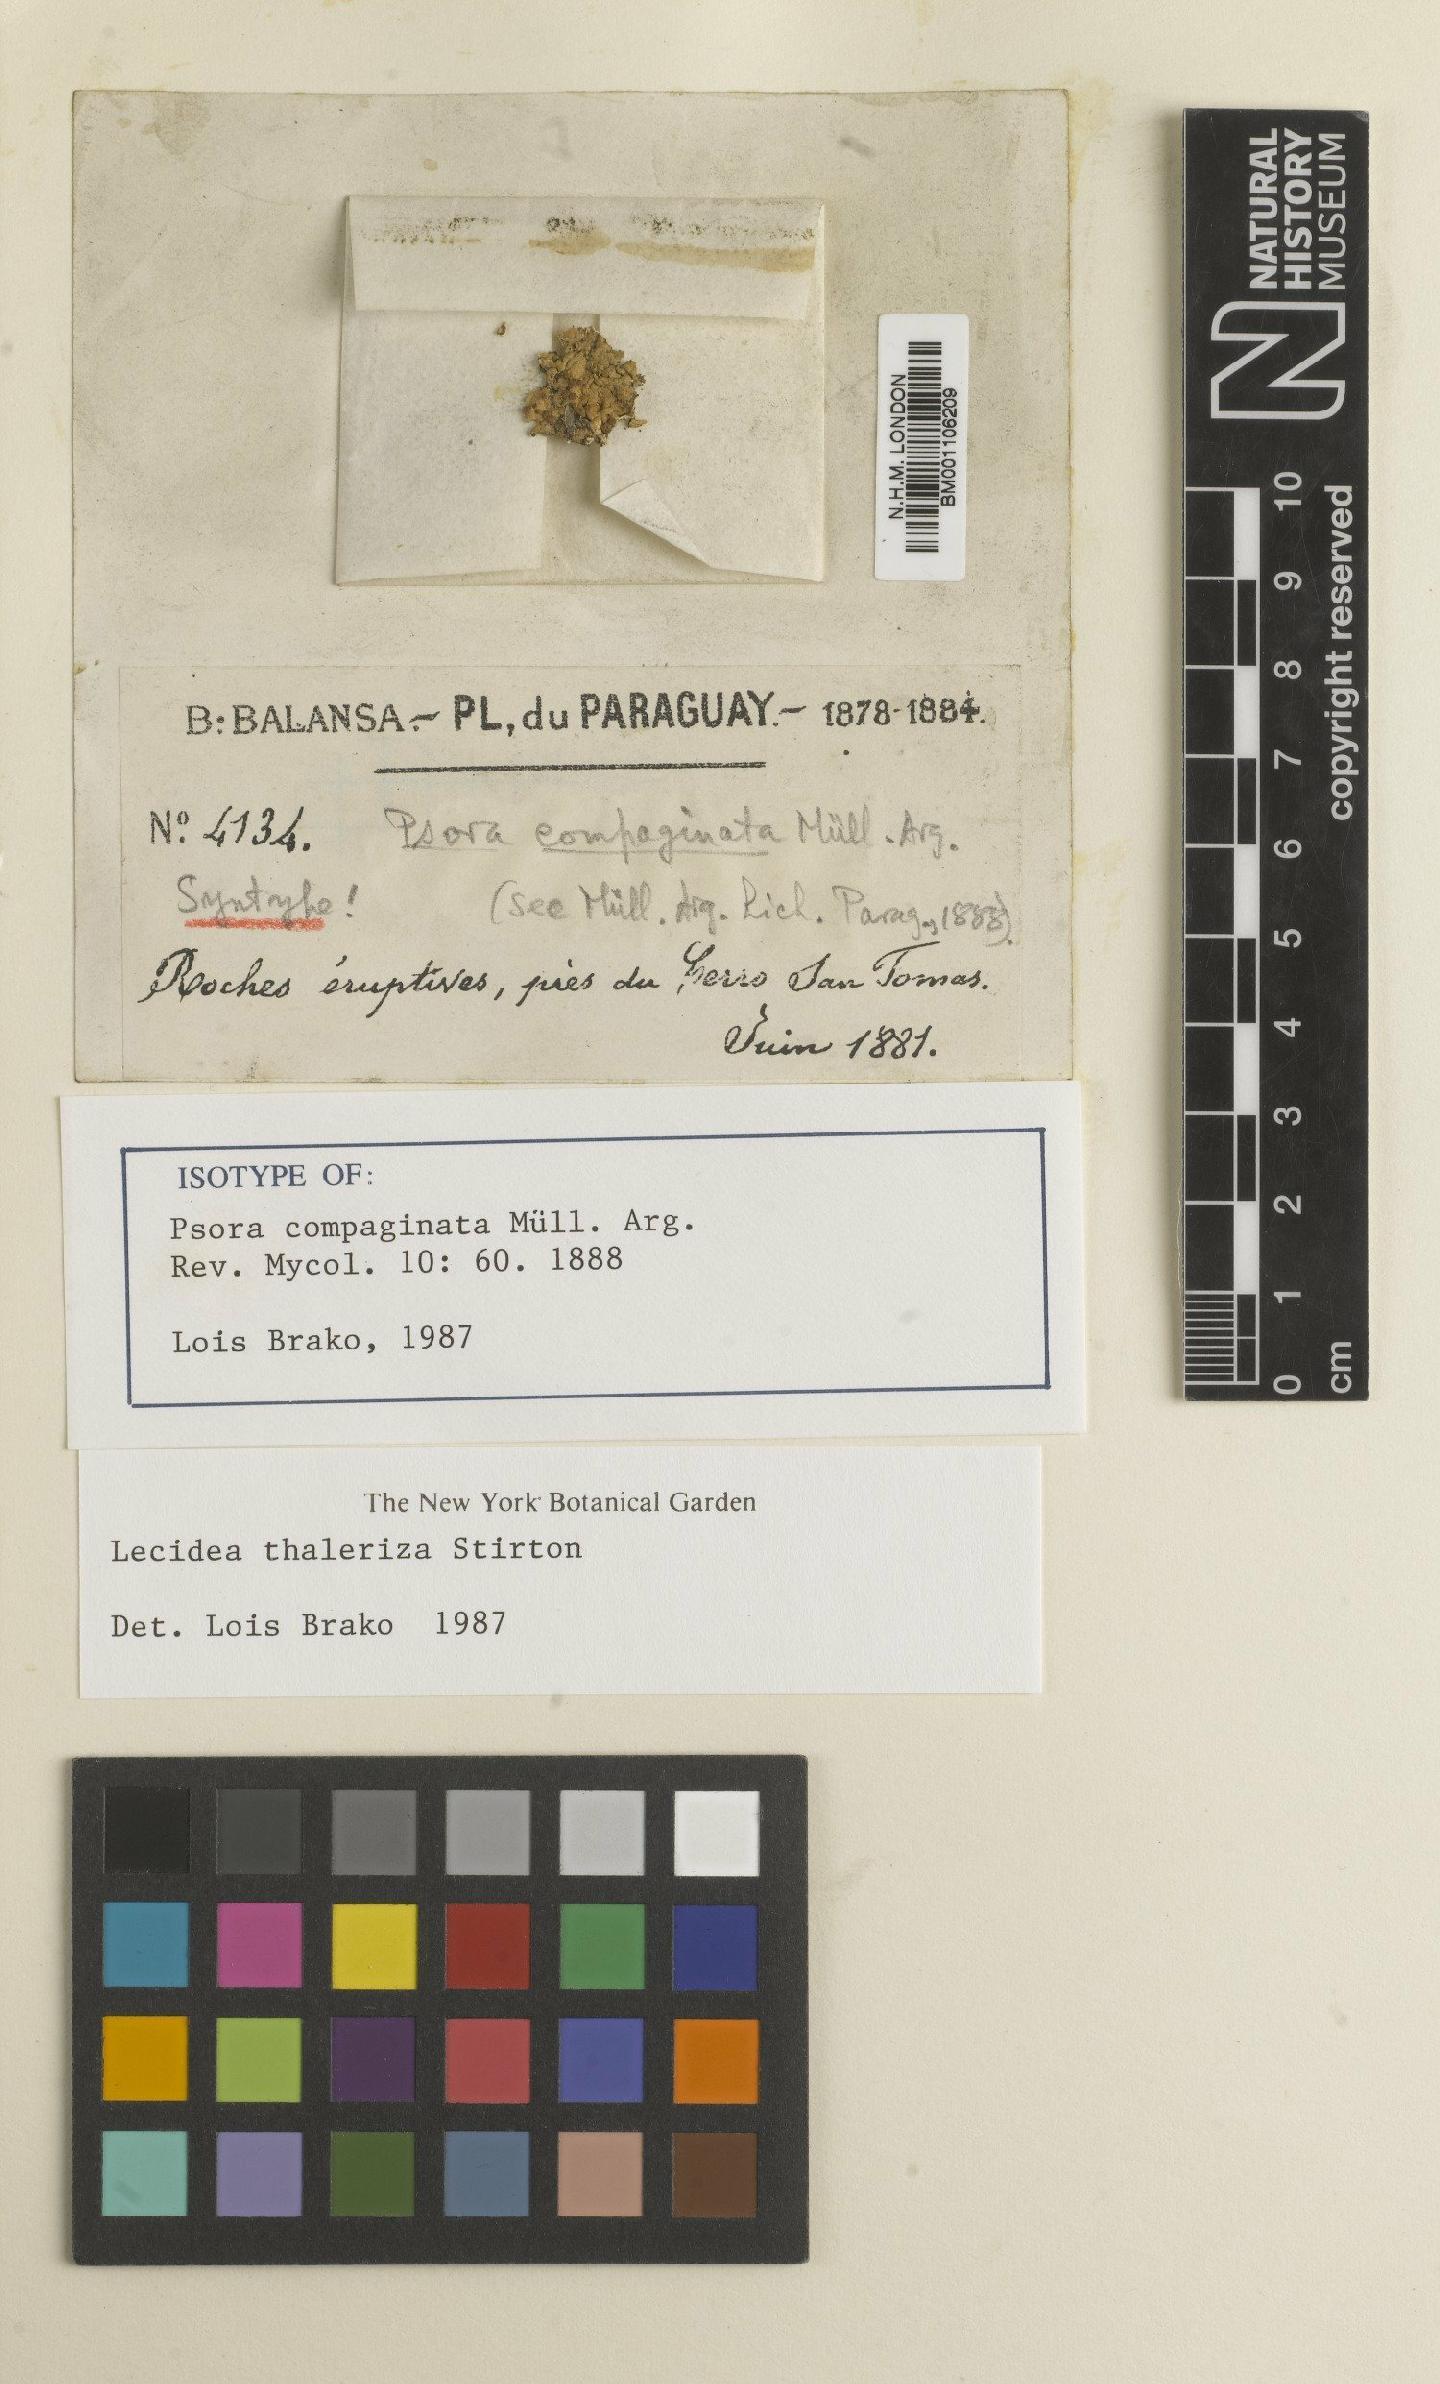 N.H.M. LONDON
BM001106209
B. BALANSA.— PL. du PARAGUAY.— 1878-1884.
No. 4134. Psora compaginata Müll. Arg.
Syntype! (see Müll. Arg. Lich. Parag., 1888).
Roches éruptives, près du Cerro San Tomas.
Juin 1881.
ISOTYPE OF:
Psora compaginata Müll. Arg.
Rev. Mycol. 10: 60. 1888
Lois Brako, 1987
The New York Botanical Garden
Lecidea thaleriza Stirton
Det. Lois Brako 1987
NATURAL
HISTORY
MUSEUM
copyright reserved
10
9
8
7
6
5
4
3
2
1
0
cm